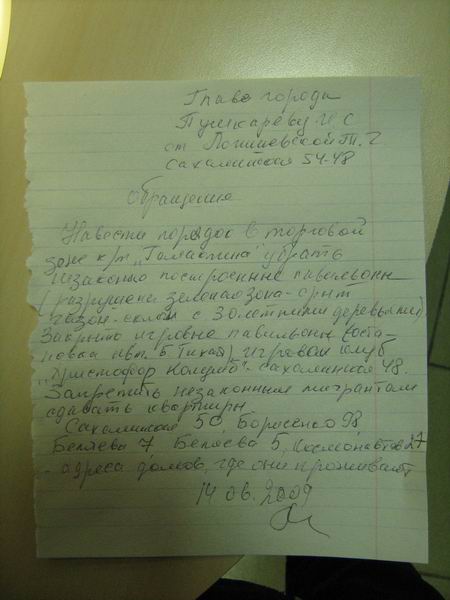 Главе города
Пушкареву И С
от Логишевской Т. Г
Сахалинская 54-48
Обращение
Навести порядок в торговой
зоне к/т "Галактика" убрать
незаконно построенные павильоны
(разрушена зеленая зона-
газон-склон с 30 летними деревьями)
Закрыть игровые павильоны оста-
новка авт. 5 (икат), игровой клуб
"Христофор Колумб" - сахалинская 48.
Запретить незаконным мигрантам
сдавать квартиры.
Сахалинская 50, Борисенко 98
Беляева 7 Беляева 5, Космонавтов 17
- адреса домов, где они проживают
14 06. 2009